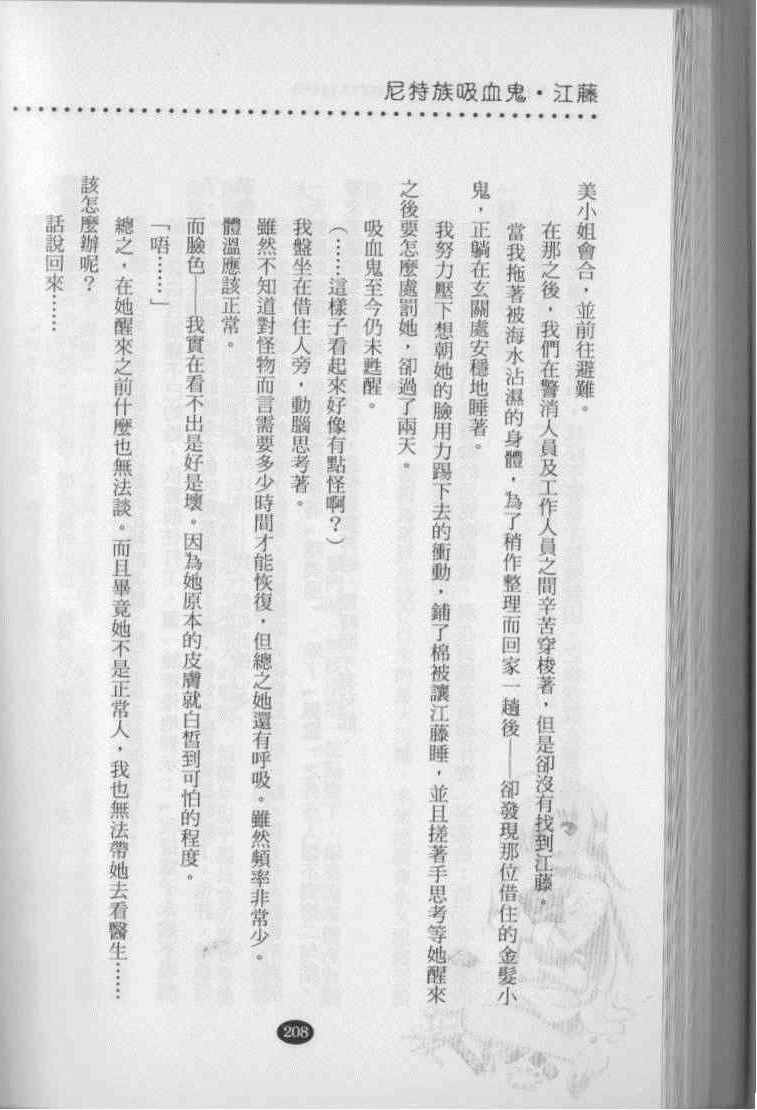 尼特族吸血鬼・江藤
美小姐會合，並前往避難。
在那之後，我們在警消人員及工作人員之間辛苦穿梭著，但是卻沒有找到江藤。
當我拖著被海水沾濕的身體，為了稍作整理而回家一趟後——卻發現那位借住的金髮小
鬼，正躺在玄關處安穩地睡著。
我努力壓下想朝她的臉用力踢下去的衝動，鋪了棉被讓江藤睡，並且搓著手思考等她醒來
之後要怎麼處罰她，卻過了兩天。
吸血鬼至今仍未甦醒。
（……這樣子看起來好像有點怪啊？）
我盤坐在借住人旁，動腦思考著。
雖然不知道對怪物而言需要多少時間才能恢復，但總之她還有呼吸。雖然頻率非常少。
體溫應該正常。
而臉色——我實在看不出是好是壞。因為她原本的皮膚就白皙到可怕的程度。
「唔……」
總之，在她醒來之前什麼也無法談。而且畢竟她不是正常人，我也無法帶她去看醫生……
該怎麼辦呢？
話說回來……
208